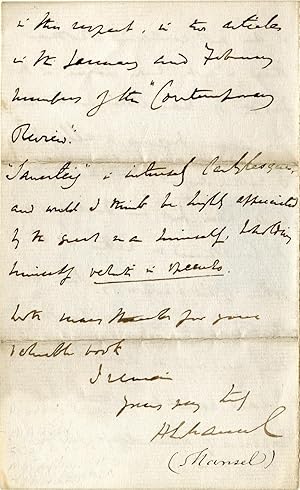 in this respect, in two articles
in the January and February
numbers of the "Contemporary
Review".
" is intensely Carlylesque,
and would I think be highly appreciated
by the great man himself, beholding
himself veluti in speculo.
With many thanks for your
valuable book
I remain
Yours very truly
H L Mansel
(Mansel)